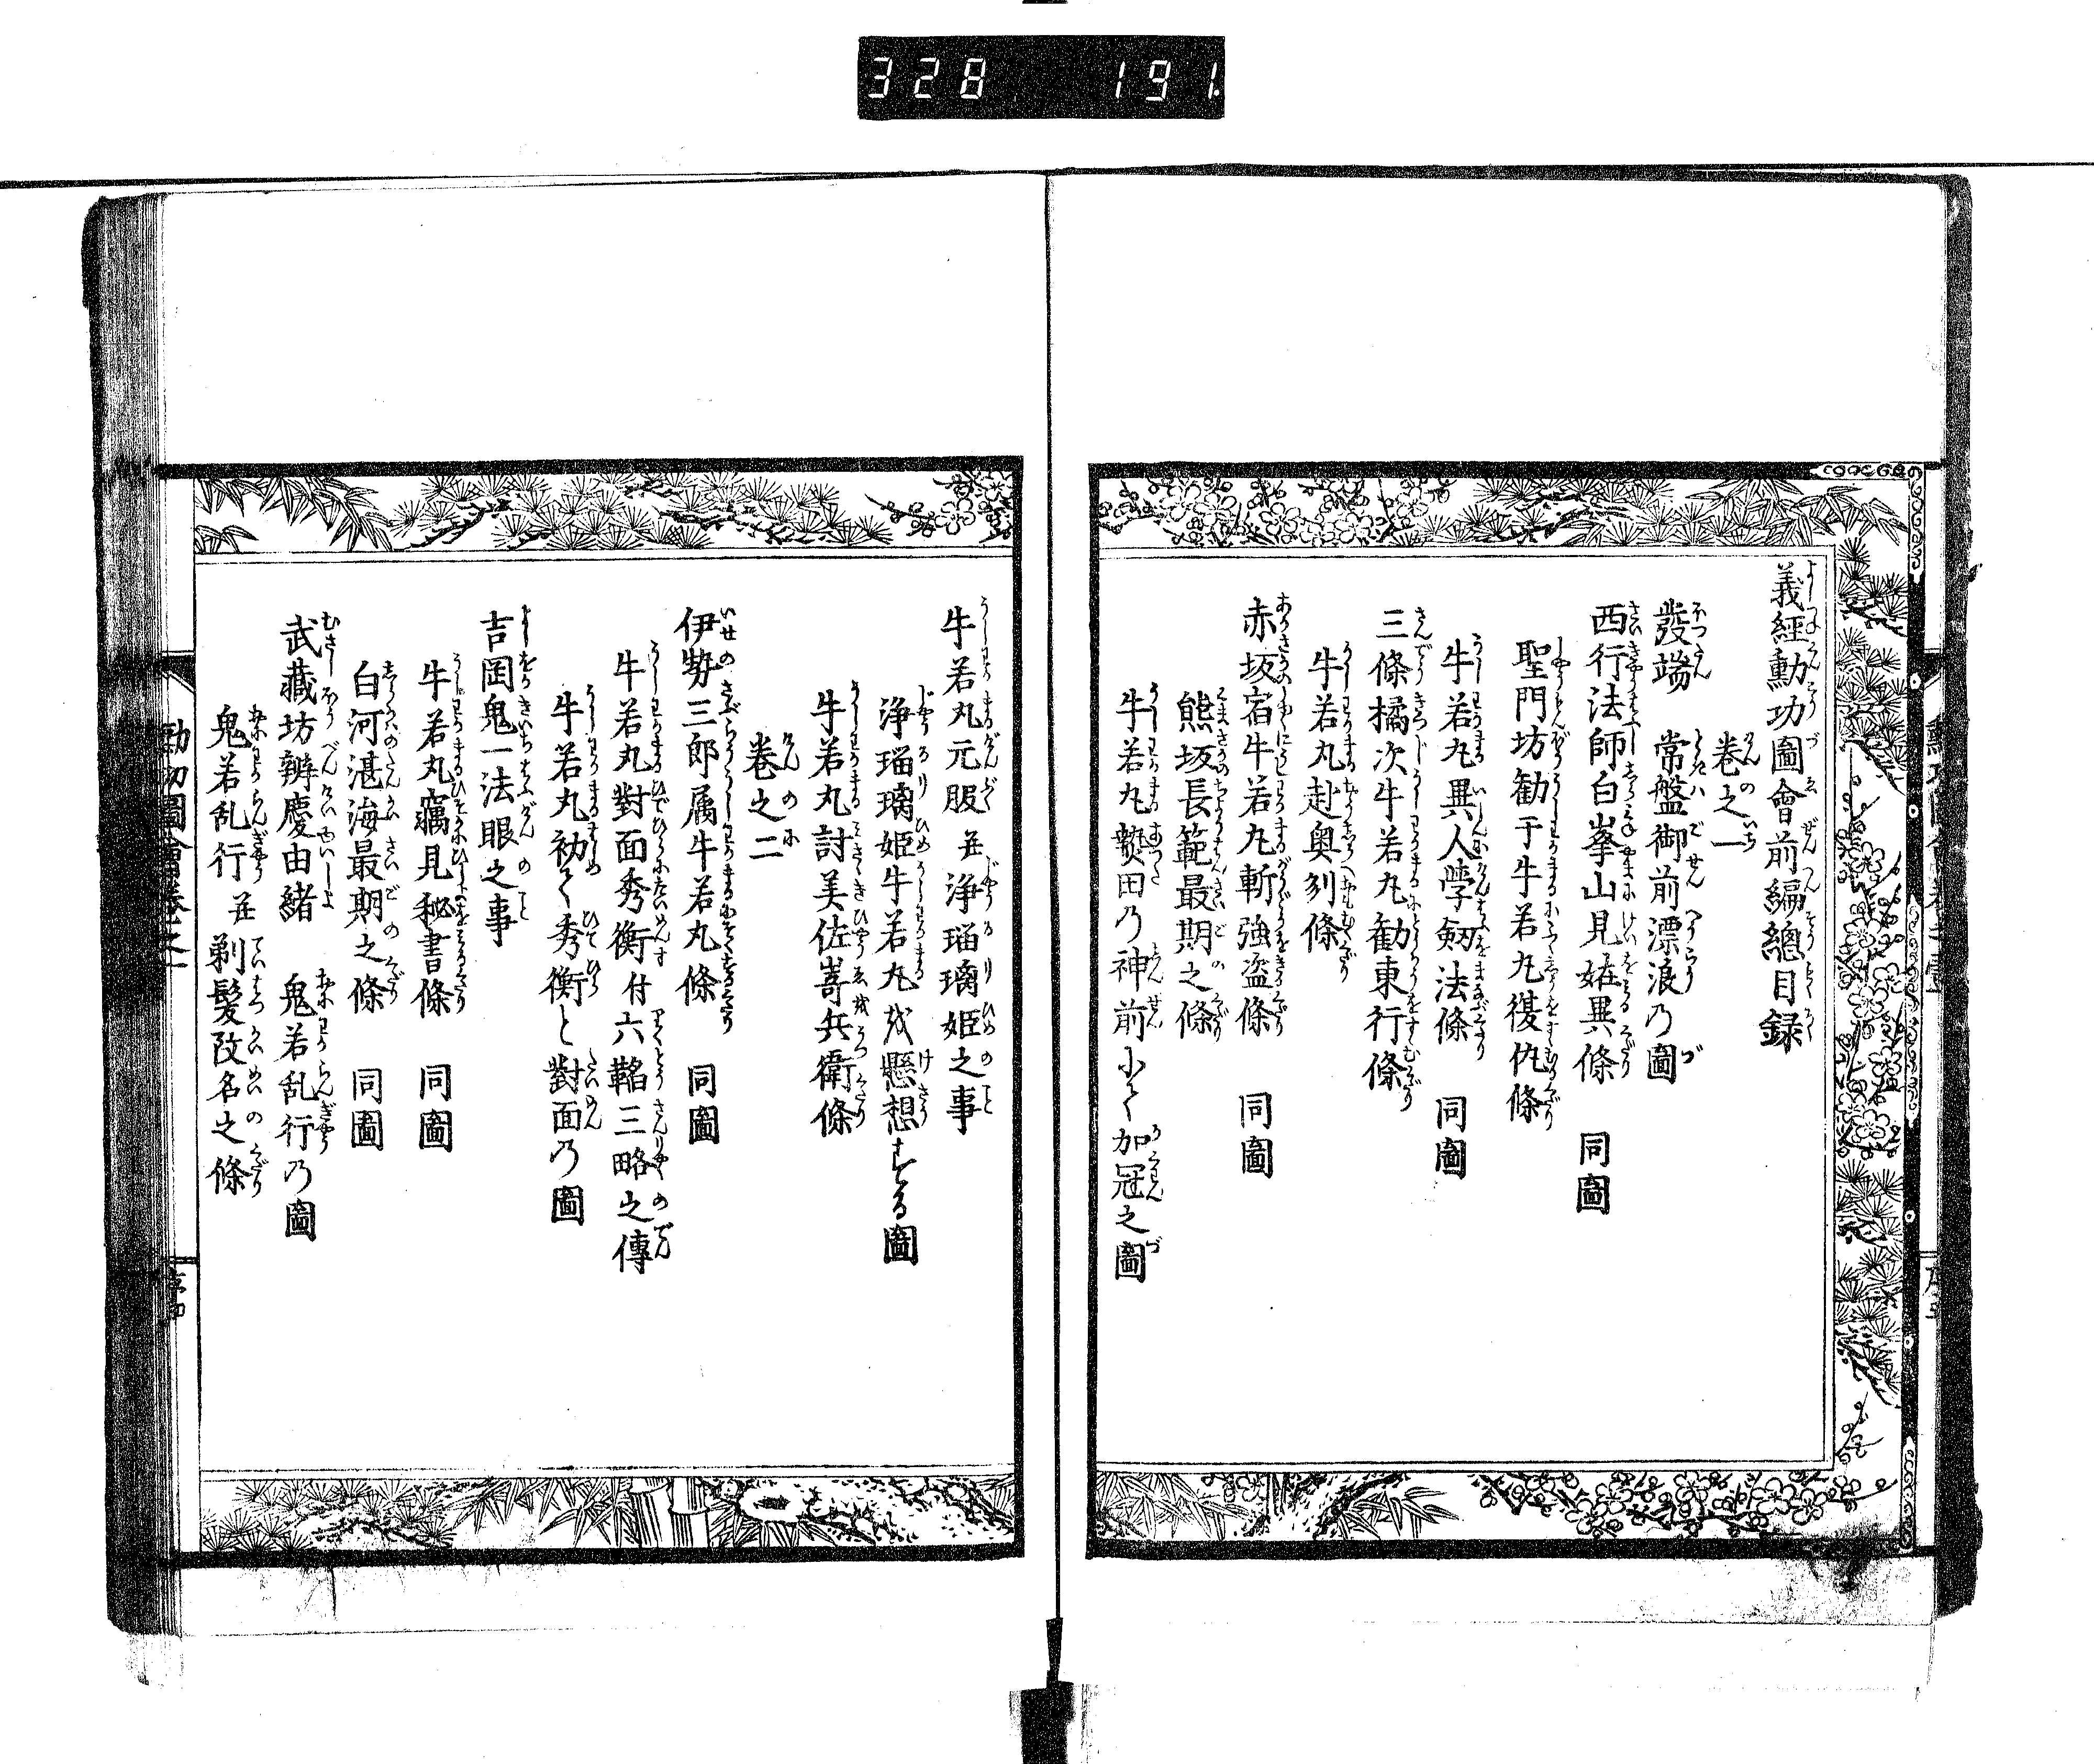 328 191.
義經勳功圖會前編總目録
巻之一
發端 常盤御前漂浪乃圖
西行法師白峯山見妖異條 同圖
聖門坊勧于牛若丸復仇條
牛若丸異人學劔法條 同圖
三條橘次牛若丸勧東行條
牛若丸赴奥刕條
赤坂宿牛若丸斬強盗條 同圖
熊坂長範最期之條
牛若丸熱田乃神前にて加冠之圖
牛若丸元服並浄瑠璃姫之事
浄瑠璃姫牛若丸を懸想する圖
牛若丸討美佐嵜兵衛條
巻之二
伊勢三郎属牛若丸條 同圖
牛若丸對面秀衡付六韜三略之傳
牛若丸初て秀衡と對面乃圖
吉岡鬼一法眼之事
牛若丸竊見秘書條 同圖
白河湛海最期之條 同圖
武藏坊辨慶由緒 鬼若乱行乃圖
鬼若乱行並剃髪改名之條
勳功圖會巻之一
序四